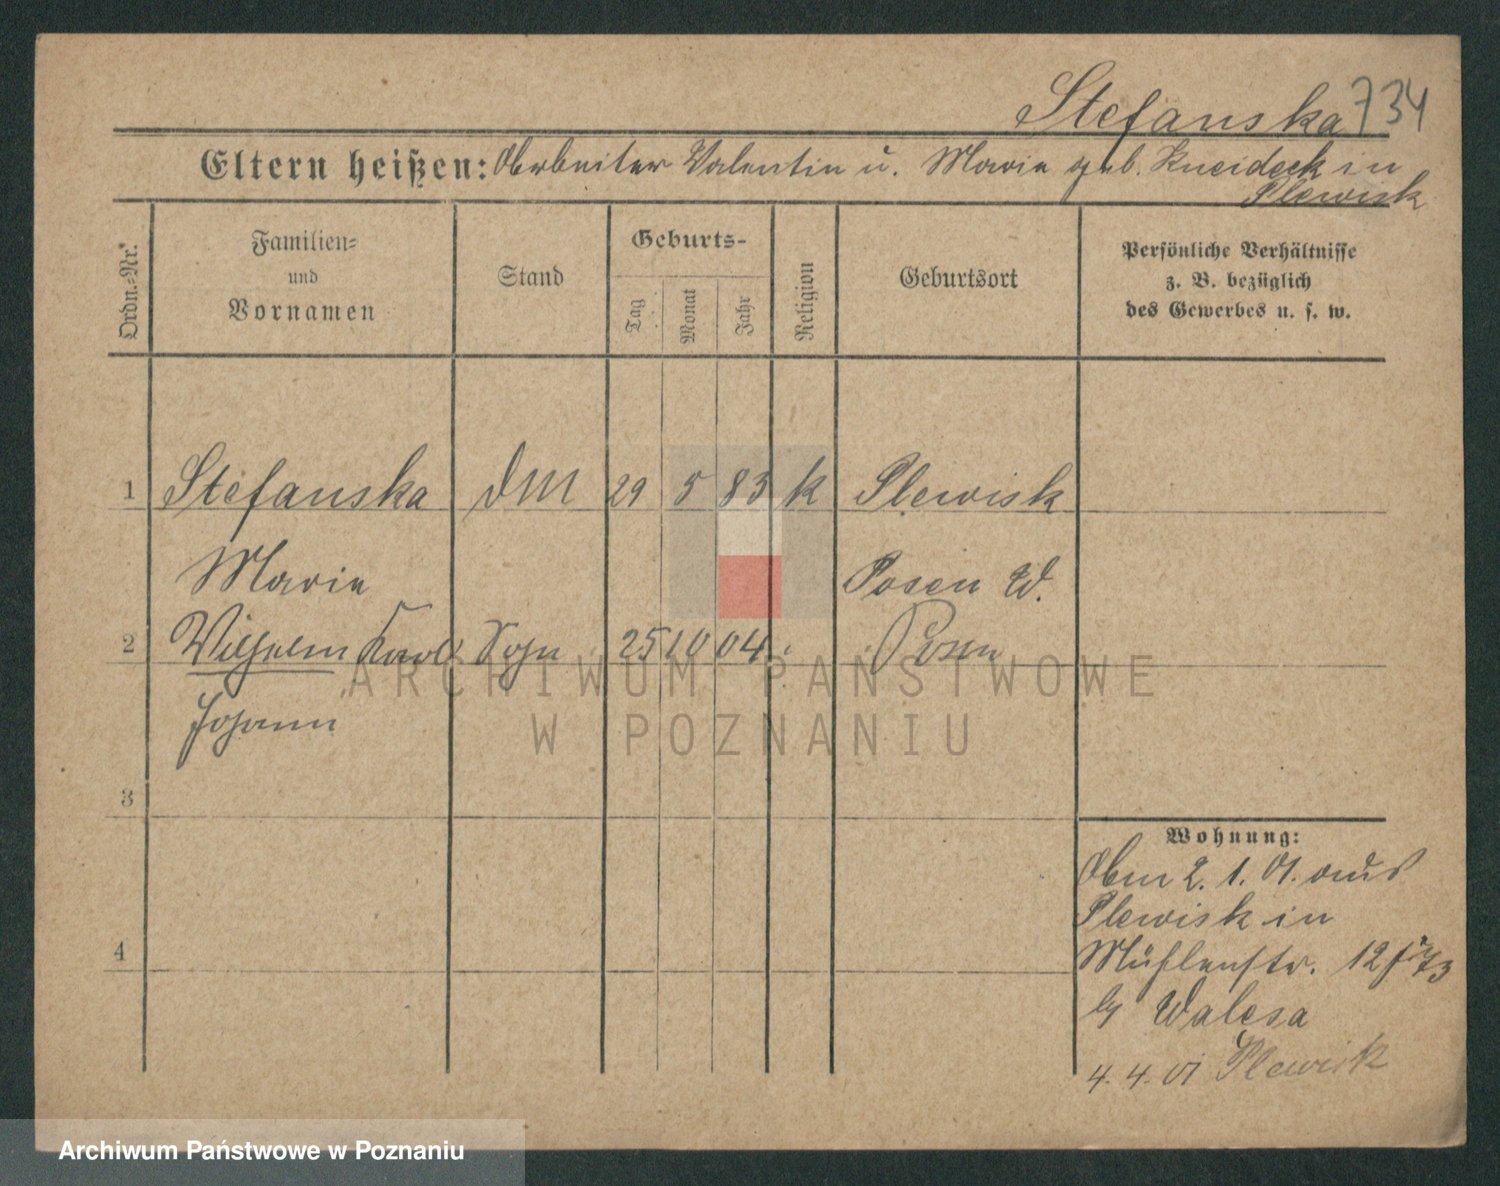 Stefanska 734
Eltern heißen: Arbeiter Valentin u. Marie geb. Kneideck in
Plewisk
Ordn.-Nr.
Familien-
und
Vornamen
Stand
Geburts-
Tag
Monat
Jahr
Religion
Geburtsort
Persönliche Verhältnisse
z. B. bezüglich
des Gewerbes u. s. w.
1 Stefanska DM 29 5 83 k Plewisk
Marie Posen W.
2 Wilhelm Karl Sohn 25 10 04 Posen
Johann
3
4
Wohnung:
2. 1. 01. aus
Plewisk in
Mühlenstr. 12
by Walesa
4. 4. 01 Plewisk
ARCHIWUM PAŃSTWOWE
W POZNANIU
Archiwum Państwowe w Poznaniu